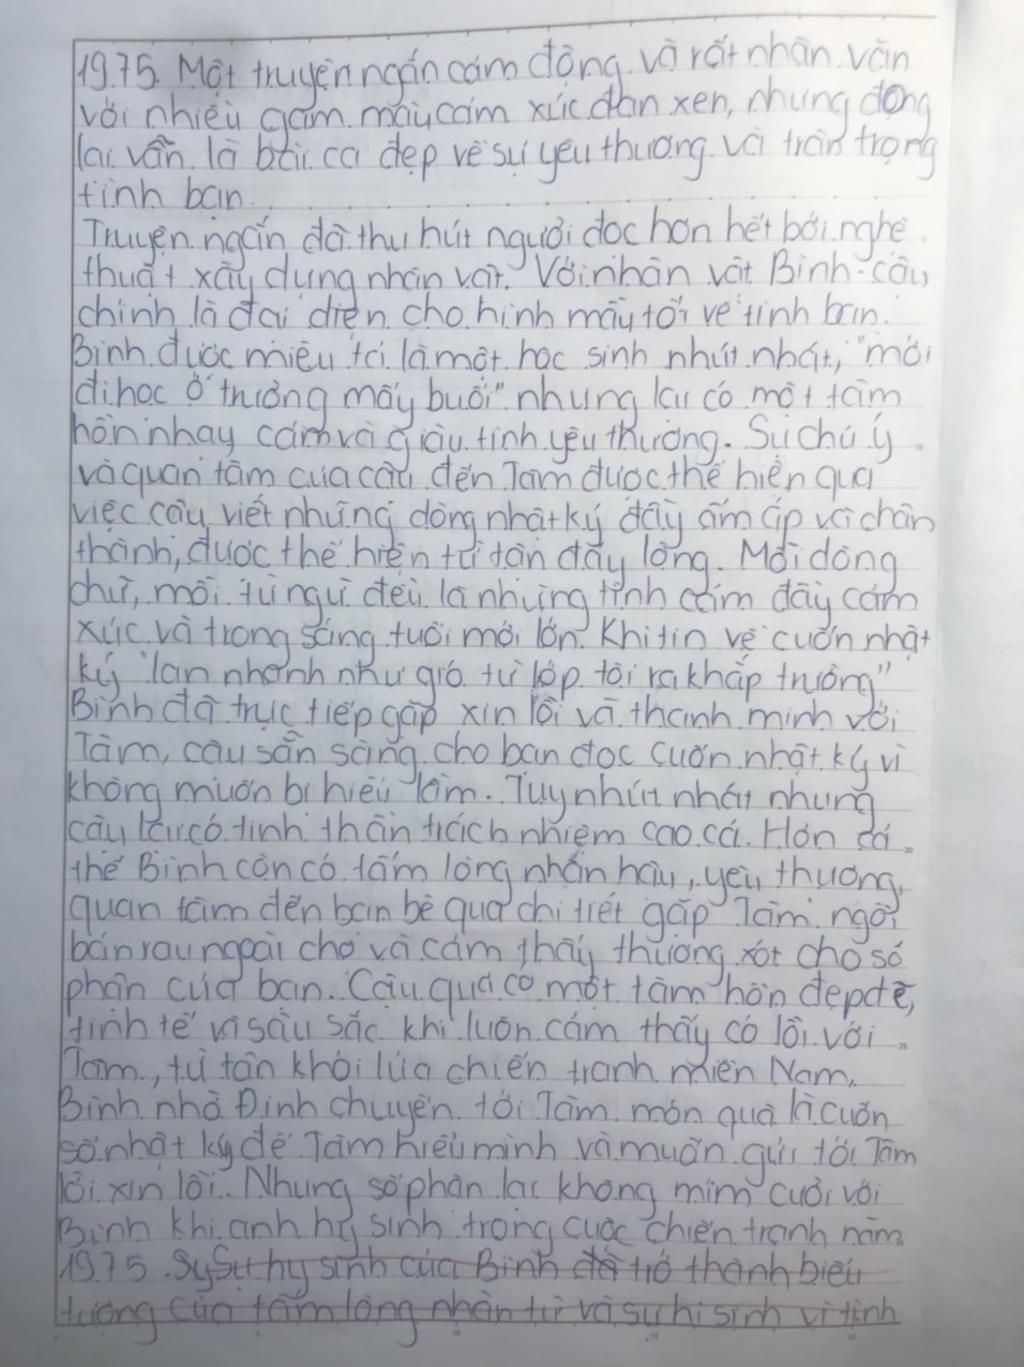 1975. Một truyện ngắn cảm động và rất nhân văn
với nhiều gam màu cảm xúc đan xen, nhưng đọng
lại vẫn là bài ca đẹp về sự yêu thương và trân trọng
tình bạn.
Truyện ngắn đã thu hút người đọc hơn hết bởi nghệ
thuật xây dựng nhân vật. Với nhân vật Bình - cậu
chính là đại diện cho hình mẫu tốt về tình bạn.
Bình được miêu tả là một học sinh nhút nhát, "mới
đi học ở trường mấy buổi" nhưng lại có một tâm
hồn nhạy cảm và giàu tình yêu thương. Sự chú ý
và quan tâm của cậu đến Tâm được thể hiện qua
việc cậu viết những dòng nhật ký đầy ấm áp và chân
thành, được thể hiện từ tận đáy lòng. Mỗi dòng
chữ, mỗi từ ngữ đều là những tình cảm đầy cảm
xúc và trong sáng tuổi mới lớn. Khi tin về cuốn nhật
ký "lan nhanh như gió từ lớp tôi ra khắp trường"
Bình đã trực tiếp gặp xin lỗi và thanh minh với
Tâm, cậu sẵn sàng cho bạn đọc cuốn nhật ký vì
không muốn bị hiểu lầm. Tuy nhút nhát nhưng
cậu lại có tinh thần trách nhiệm cao cả. Hơn cả
thế Bình còn có tấm lòng nhân hậu, yêu thương,
quan tâm đến bạn bè qua chi tiết gặp Tâm ngồi
bán rau ngoài chợ và cảm thấy thương xót cho số
phận của bạn. Cậu quả có một tâm hồn đẹp đẽ,
tinh tế và sâu sắc khi luôn cảm thấy có lỗi với
Tâm, từ tận khói lửa chiến tranh miền Nam,
Bình nhờ Định chuyển tới Tâm món quà là cuốn
sổ nhật ký để Tâm hiểu mình và muốn gửi tới Tâm
lời xin lỗi. Nhưng số phận lại không mỉm cười với
Bình khi anh hy sinh trong cuộc chiến tranh năm
1975. Sỵ Sự hy sinh của Bình đã trở thành biểu
tượng của tấm lòng nhân từ và sự hi sinh vì tình